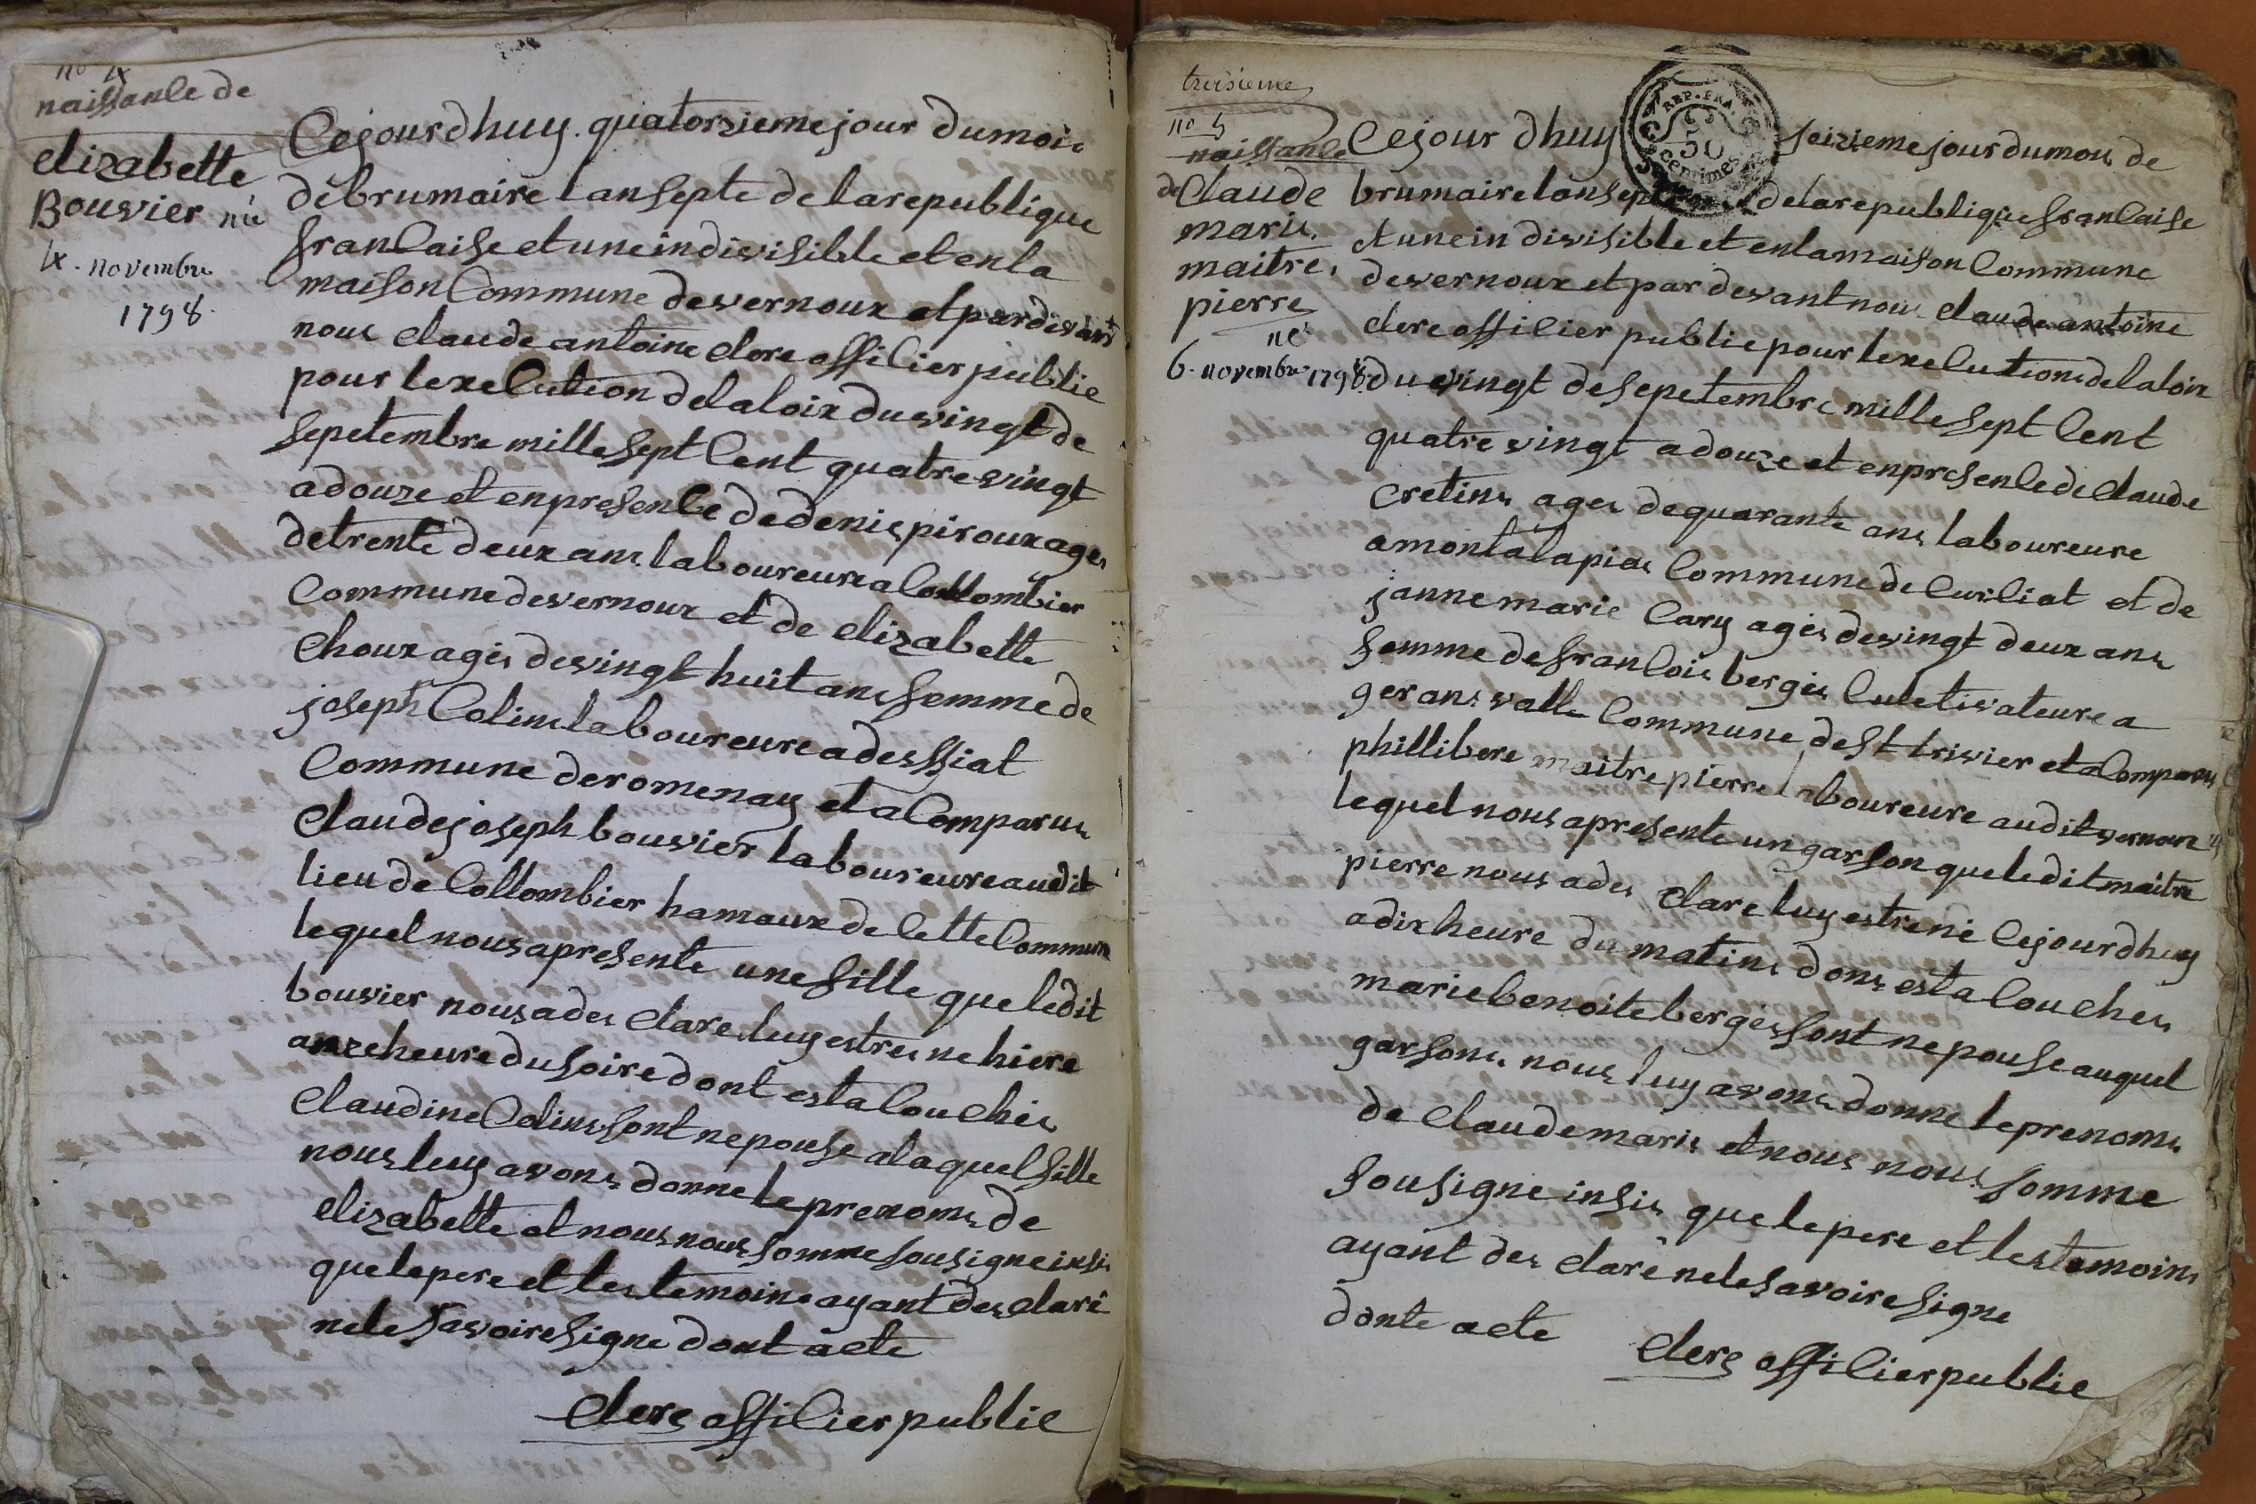 no 4
naissanCe de
elizabette
Bouvier née
4. novembre
1798.
Cejourdhuy. quatorzieme jour dumois
debrumaire lansepte de larepublique
franCaise etuneindivisible etenla
maison Commune devernoux etpardevant
nous claude antoine clere offiCier publie
pour lexeCution delaloix duvingt de
sepetembre mille sept Cent quatrevingt
adouze et enpresenCe dedenis piroux ages
detrente deux ans laboureure a Collombier
Commune devernoux et de elizabette
Choux ages devingt huit ans femme de
joseph Colins laboureure a desSiat
Commune deromenay et a Comparus
Claude joseph bouvier laboureure audit
lieu de Collombier hamaux de Cette Commune
lequel nousapresente une fille queledit
bouvier nous ades clare luy estres ne hiere
a onze heure dusoire dont esta Couches
Claudine Colins sont nepouse alaquel fille
nous luy avons donne leprenoms de
elizabette et nous nous somme sousigne insis
quelepere et les temoins ayant des claré
nele savoire signe dont acte
Clere offiCier publie
troisieme
no 5
naissanCe
de Claude
marie
maitre
pierre
né
6. novembre 1798
Cejour dhuy seizieme jour dumois de
REP. FRA
50
centimes
brumaire lansepte delarepublique franCaise
etunein divisible et enlamaison Commune
devernoux et par devant nous claude antoine
clere offiCier publie pour lexeCution delaloix
du vingt de sepetembre mille sept Cent
quatre vingt adouze et enpresenCe de Claude
cretins ages dequarante ans laboureure
amontalapias Commune de CurCiat et de
janne marie Cary ages devingt deux ans
femme de franCois berges Culetivateure a
gerans valle Commune de St trivier et a Comparus
phillibere maitrepierre laboureure audit vernoux
lequel nous apresente un garSon queledit maitre
pierre nous ades clare luy estre né Cejourdhuy
adix heure du matins dons esta Couches
marie benoite berges sont nepouse auquel
garsons nous luy avons donne leprenoms
de Claude marie et nous nous somme
sousigne insis que lepere et lestemoins
ayant des claré nele savoire signe
donte acte
Clere offiCier publie